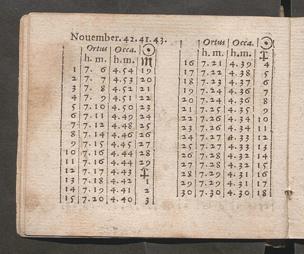 Nouember. 42. 41. 43.
Ortus Occa. ☉
h. m. h. m. ♏
1 7. 6 4.54 19
2 7. 7 4.53 20
3 7. 8 4.52 21
4 7. 9 4.51 22
5 7.10 4.50 23
6 7.11 4.49 24
7 7.12 4.48 25
8 7.14 4.46 26
9 7.15 4.45 27
10 7.16 4.44 28
11 7.16 4.44 29
12 7.17 4.43 ♐
13 7.18 4.42 1
14 7.19 4.41 2
15 7.20 4.40 3
Ortus Occa. ☉
h. m. h. m. ♐
16 7.21 4.39 4
17 7.22 4.38 5
18 7.23 4.37 6
19 7.24 4.36 7
20 7.24 4.36 8
21 7.25 4.35 9
22 7.26 4.34 10
23 7.26 4.34 11
24 7.27 4.33 12
25 7.27 4.33 13
26 7.28 4.32 14
27 7.28 4.32 15
28 7.29 4.31
29 7.29 4.31 17
30 7.30 4.30 18